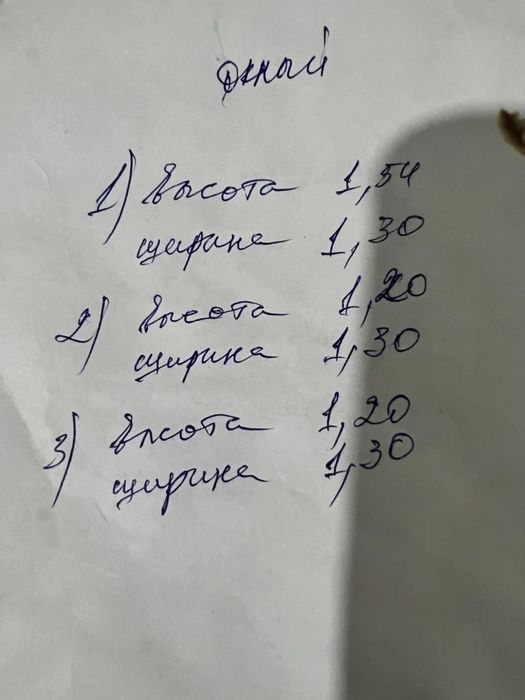 Юный
1) Высота 1,54
ширина 1,30
2) Высота 1,20
ширина 1,30
3) Высота 1,20
ширина 1,30